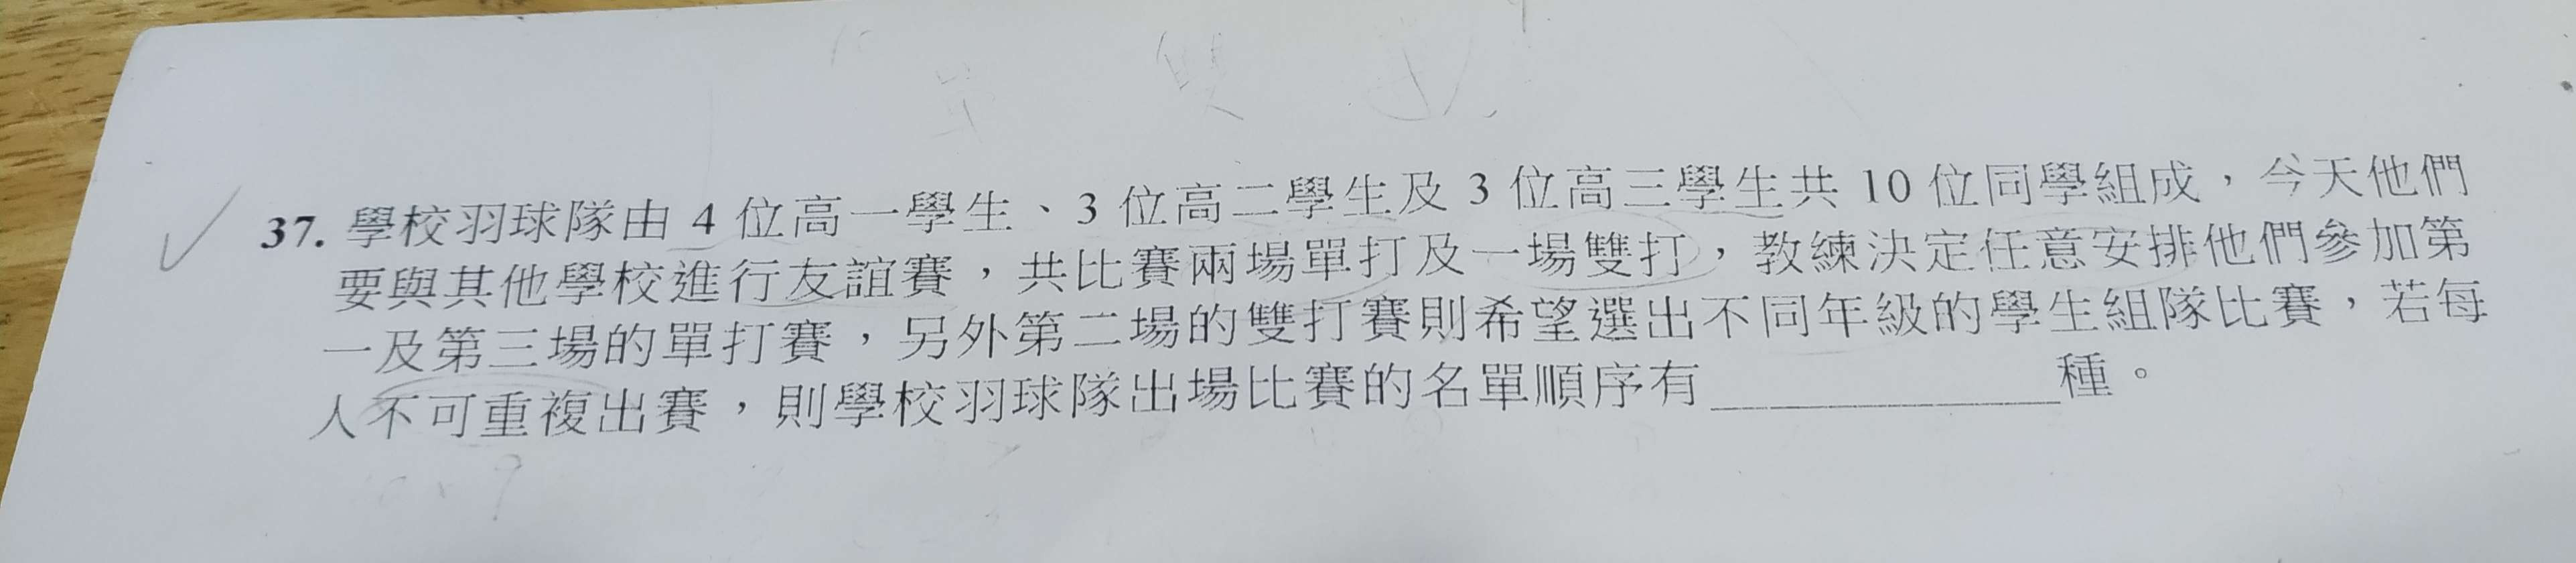 單 雙
37. 學校羽球隊由 4 位高一學生、3 位高二學生及 3 位高三學生共 10 位同學組成，今天他們
要與其他學校進行友誼賽，共比賽兩場單打及一場雙打，教練決定任意安排他們參加第
一及第三場的單打賽，另外第二場的雙打賽則希望選出不同年級的學生組隊比賽，若每
人不可重複出賽，則學校羽球隊出場比賽的名單順序有＿＿＿＿＿＿種。